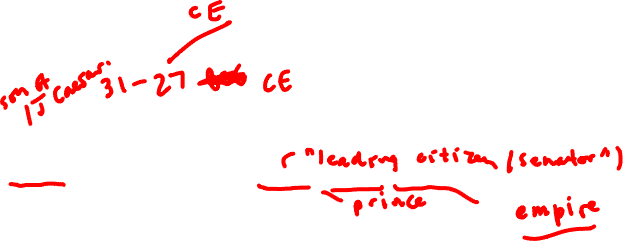 CE
son of
J Caesar. 31-27 CE
"leading citizen (senator")
prince
empire